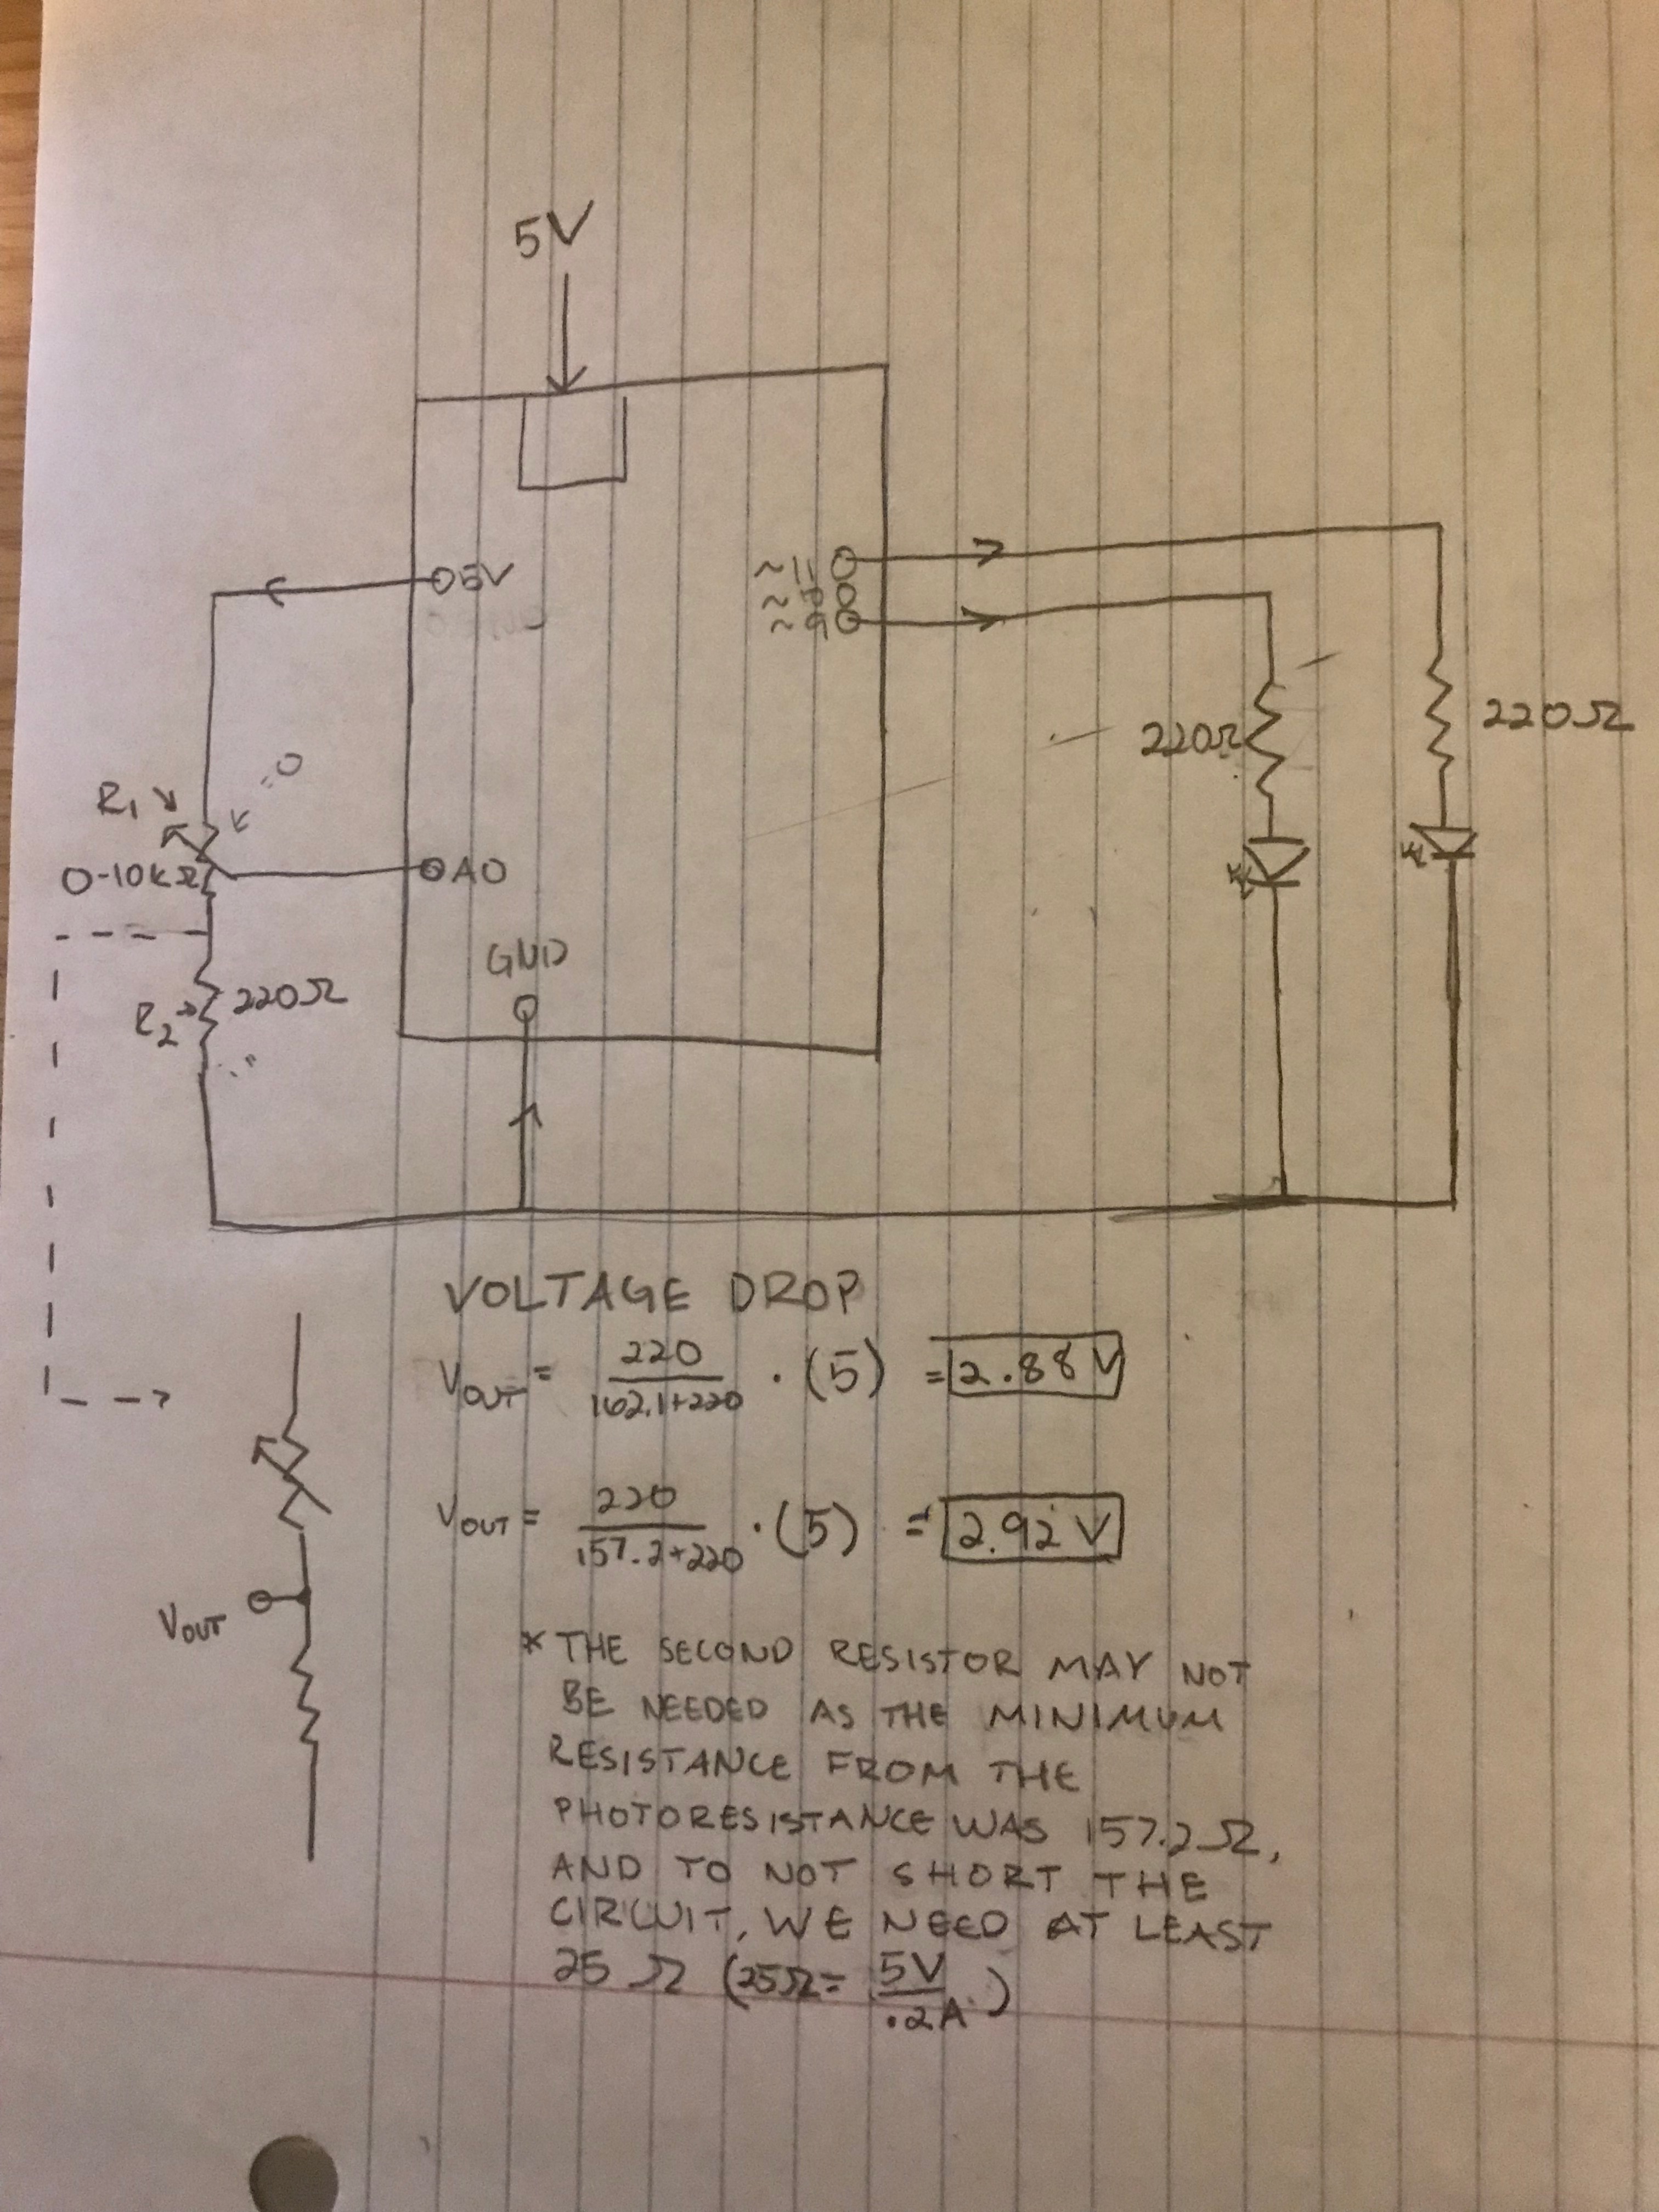 5V
5V
~11
~10
~9
220Ω
220Ω
R1
=0
0-10kΩ
A0
GND
R2
220Ω
VOLTAGE DROP
VOUT = 220/162.1+220 · (5) = 2.88 V
VOUT = 220/157.2+220 · (5) = 2.92 V
VOUT
* THE SECOND RESISTOR MAY NOT
BE NEEDED AS THE MINIMUM
RESISTANCE FROM THE
PHOTORESISTANCE WAS 157.2Ω,
AND TO NOT SHORT THE
CIRCUIT, WE NEED AT LEAST
25 Ω (25Ω = 5V/.2A)